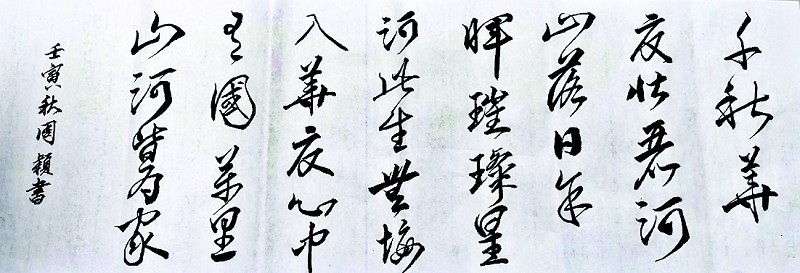 千秋華
夏壯麗河
山落日余
暉璀璨星
河此生無悔
入華夏心中
有國萬里
山河皆為家
壬寅秋周穎書